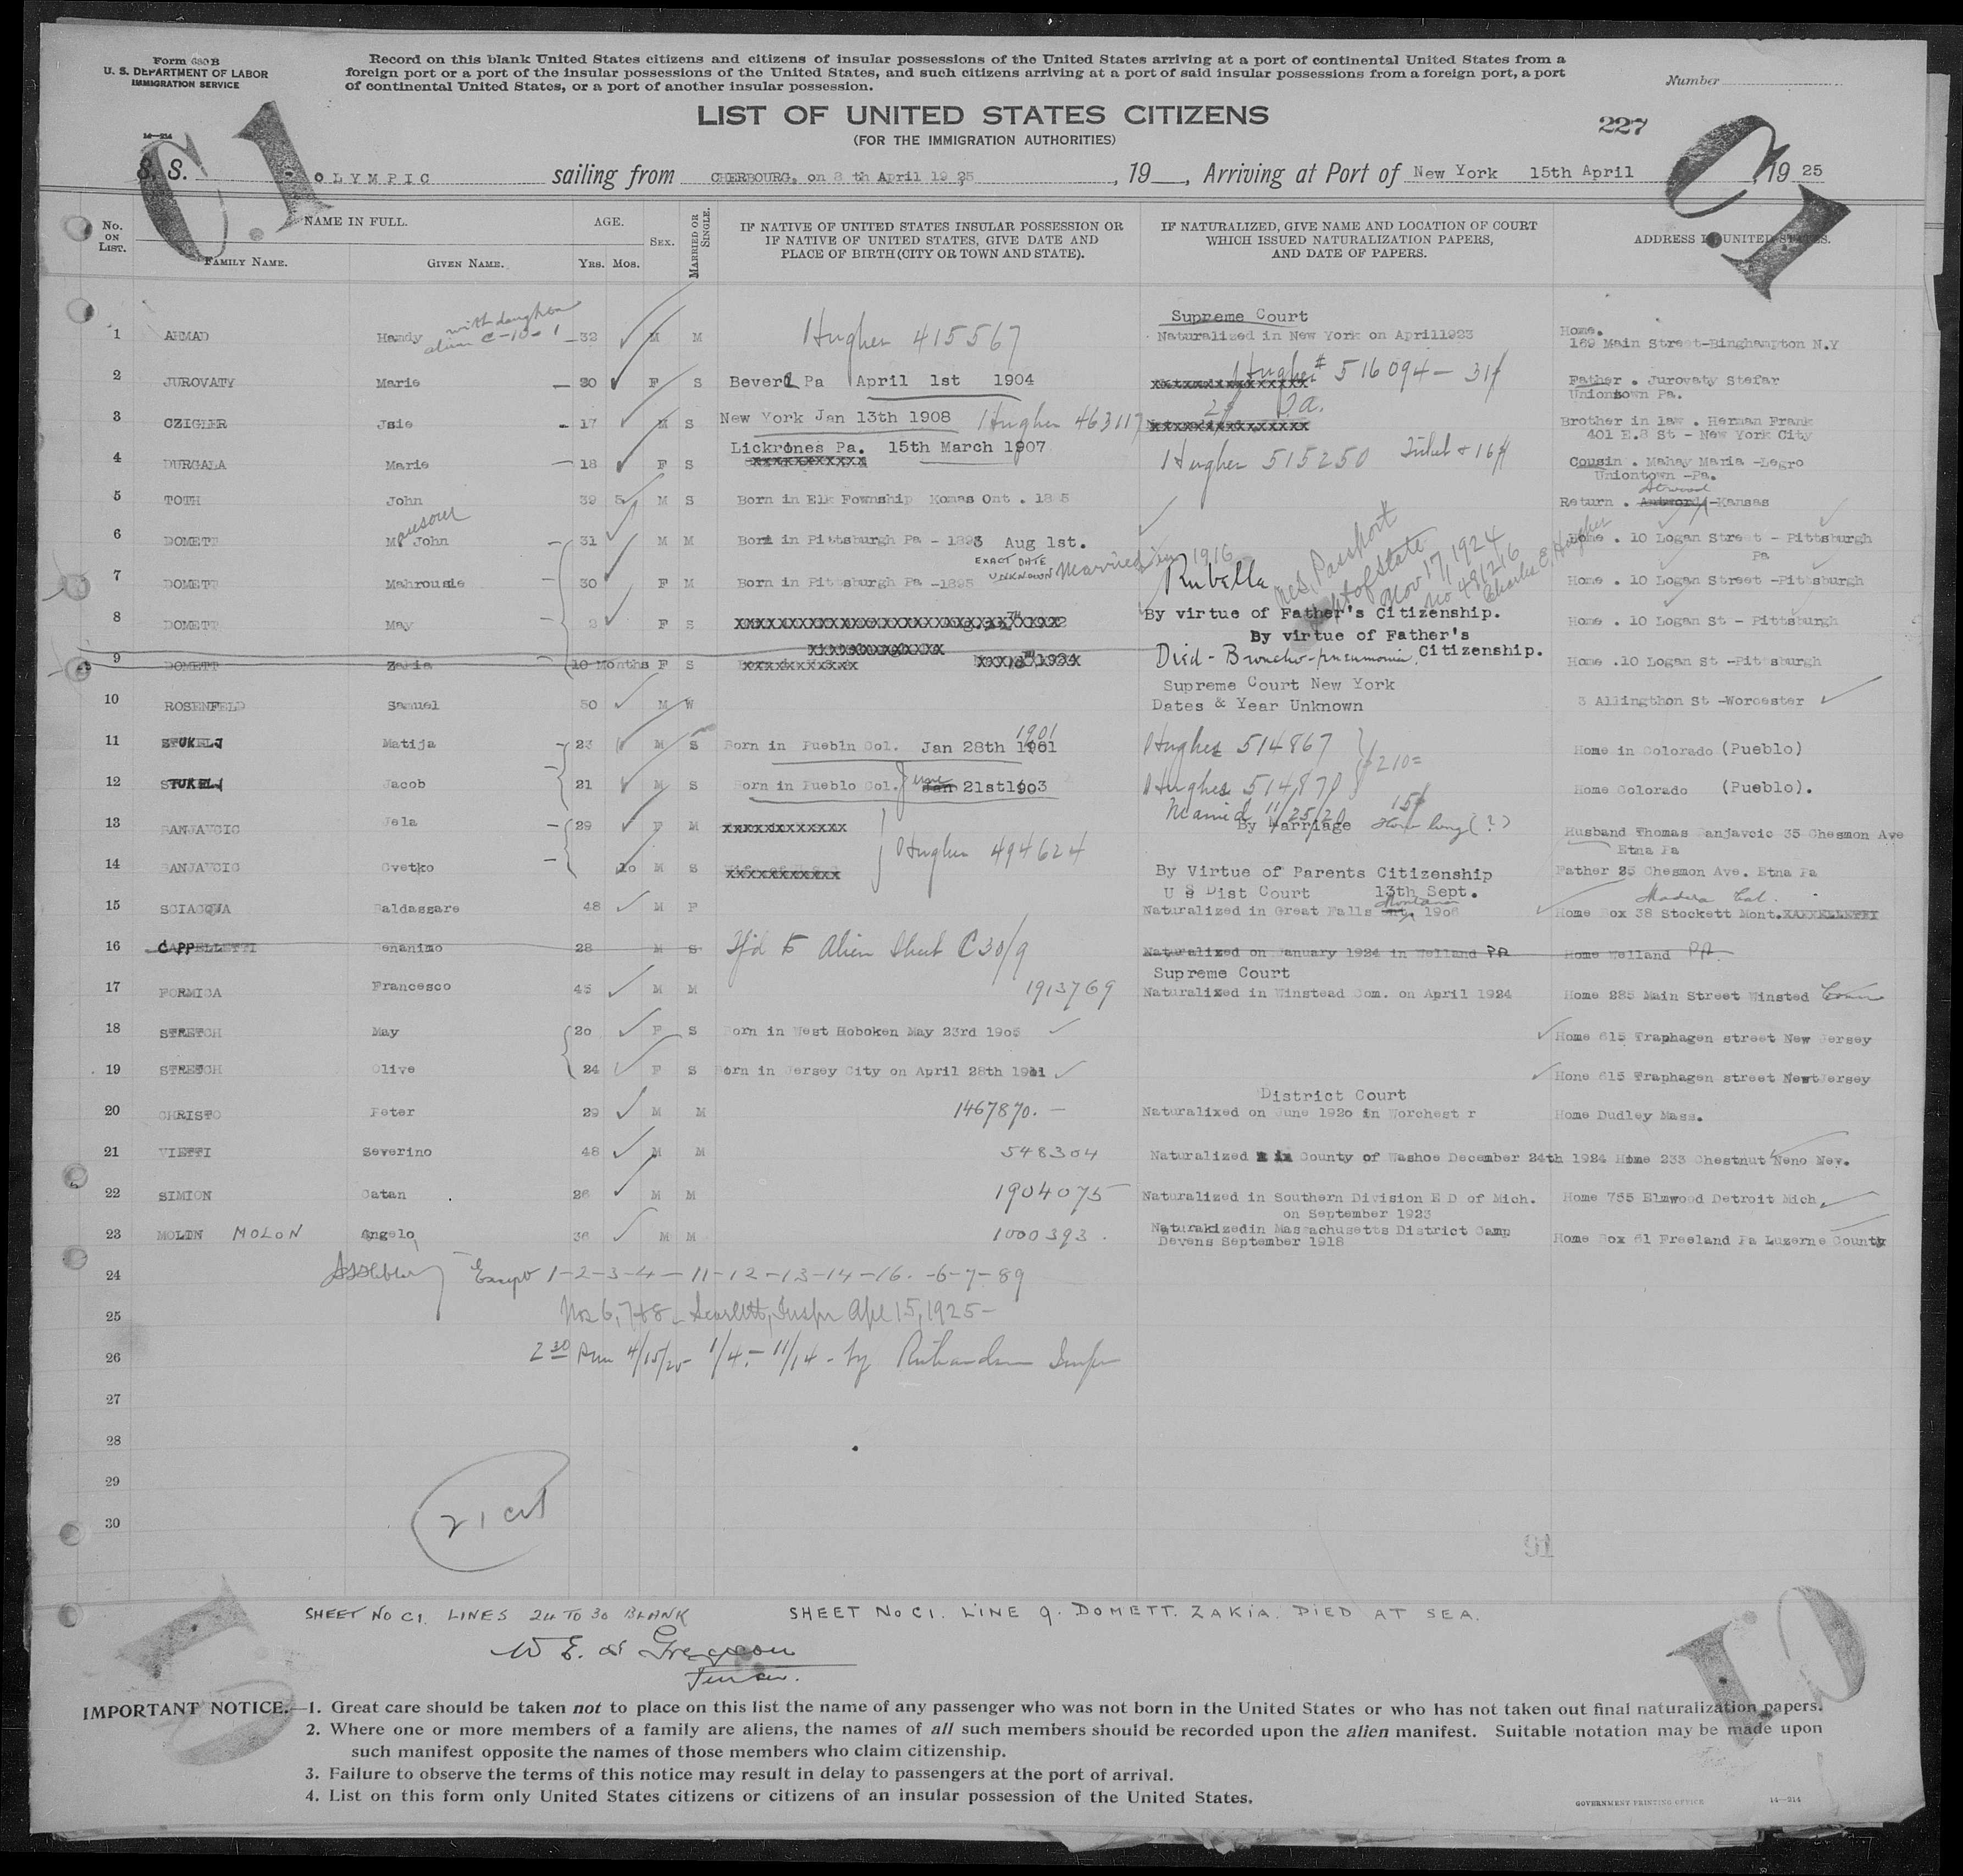 Form 630 B
U. S. DEPARTMENT OF LABOR
IMMIGRATION SERVICE
14—214
Record on this blank United States citizens and citizens of insular possessions of the United States arriving at a port of continental United States from a
foreign port or a port of the insular possessions of the United States, and such citizens arriving at a port of said insular possessions from a foreign port, a port
of continental United States, or a port of another insular possession.
Number
LIST OF UNITED STATES CITIZENS
(FOR THE IMMIGRATION AUTHORITIES)
227
C.1
C1
S. S. OLYMPIC sailing from CHERBOURG, on 8 th April 19 25, 19__, Arriving at Port of New York 15th April, 19 25
No. ON LIST.
NAME IN FULL.
FAMILY NAME.
GIVEN NAME.
AGE.
YRS. MOS.
SEX.
MARRIED OR SINGLE.
IF NATIVE OF UNITED STATES INSULAR POSSESSION OR
IF NATIVE OF UNITED STATES, GIVE DATE AND
PLACE OF BIRTH (CITY OR TOWN AND STATE).
IF NATURALIZED, GIVE NAME AND LOCATION OF COURT
WHICH ISSUED NATURALIZATION PAPERS,
AND DATE OF PAPERS.
ADDRESS IN UNITED STATES.
with daughter
alien C-10-1
Supreme Court
1 AHMAD Hamdy 32 M M Hughes 415567 Naturalized in New York on April1923 Home.
169 Main Street-Binghampton N.Y
2 JUROVATY Marie 20 F S Beverl Pa April 1st 1904 Hughes # 516094 — 31/ Father . Jurovaty Stefar
Uniontown Pa.
3 CZIGLER Jsie 17 M S New York Jan 13th 1908 Hughes 463117 Brother in law . Herman Frank
401 E.8 St - New York City
4 DURGALA Marie 18 F S Lickrones Pa. 15th March 1907 Hughes 515250 Cousin . Mahay Maria -Legro
Uniontown -Pa.
5 TOTH John 39 5 M S Born in Elk Fownship Komas Ont . 18 5 Return . Atwood -Kansas
6 DOMETT Mansour John 31 M M Born in Pittsburgh Pa - 1893 Aug 1st. Home . 10 Logan Street - Pittsburgh
Pa
EXACT DATE
UNKNOWN Married in 1916
7 DOMETT Mahrousie 30 F M Born in Pittsburgh Pa -1895 Rubella Home . 10 Logan Street -Pittsburgh
Passport
of State
Nov 17, 1924
No 481216
Charles E. Hughes
8 DOMETT May 2 F S By virtue of Father's Citizenship. Home . 10 Logan St - Pittsburgh
By virtue of Father's
Citizenship.
9 DOMETT Zakia 10 Months F S Died - Broncho-pneumonia Home .10 Logan St -Pittsburgh
Supreme Court New York
10 ROSENFELD Samuel 50 M W Dates & Year Unknown 3 Allingthon St -Worcester
1901
11 STUKELJ Matija 23 M S Born in Puebln Col. Jan 28th 1901 Hughes 514867 Home in Colorado (Pueblo)
12 STUKELJ Jacob 21 M S Born in Pueblo Col. June 21st1903 Hughes 514870 Home Colorado (Pueblo).
Married 11/25/20
13 SANJAVCIC Jela 29 F M By Marriage How long (?) Husband Thomas Sanjavcic 35 Chesmon Ave
Etna Pa
Hughes 494624
14 SANJAVCIC Cvetko 10 M S By Virtue of Parents Citizenship Father 25 Chesmon Ave. Etna Pa
U S Dist Court 13th Sept.
Montana
Madera Cal.
15 SCIACQUA Baldassare 48 M F Naturalized in Great Falls 1906 Home Box 38 Stockett Mont.
16 CAPPELLETTI Benanimo 28 M S Tf'd to Alien Sheet C30/9 Naturalized on January 1924 in Welland PA Home Welland PA
Supreme Court
17 FORMICA Francesco 45 M M 1913769 Naturalized in Winstead Com. on April 1924 Home 285 Main Street Winsted Conn
18 STRETCH May 20 F S Born in West Hoboken May 23rd 1905 Home 615 Traphagen street New Jersey
19 STRETCH Olive 24 F S Born in Jersey City on April 28th 1901 Hone 615 Traphagen street New Jersey
District Court
20 CHRISTO Peter 29 M M 1467870. — Naturalixed on June 1920 in Worchest r Home Dudley Mass.
21 VIETTI Severino 48 M M 548304 Naturalized in County of Washoe December 24th 1924 Home 233 Chestnut Neno Nev.
22 SIMION Catan 26 M M 1904075 Naturalized in Southern Division E D of Mich.
on September 1923 Home 755 Elmwood Detroit Mich
23 MOLIN MOLON Angelo 36 M M 1000393. Naturakizedin Massachusetts District Camp
Devens September 1918 Home Box 61 Freeland Pa Luzerne County
24 Except 1-2-3-4-11-12-13-14-16. -6-7-89
25 Nos 6, 7 & 8 - Scarlett, Inspr Apl 15, 1925-
26 2 30 Pm 4/15/25 1/4.- 11/14 - by Richardson Inspr
27
28
29
30
21 cit
91
SHEET No C1. LINES 24 TO 30 BLANK
SHEET No C1. LINE 9. DOMETT. ZAKIA. DIED AT SEA.
Purser.
IMPORTANT NOTICE.—1. Great care should be taken not to place on this list the name of any passenger who was not born in the United States or who has not taken out final naturalization papers.
2. Where one or more members of a family are aliens, the names of all such members should be recorded upon the alien manifest. Suitable notation may be made upon
such manifest opposite the names of those members who claim citizenship.
3. Failure to observe the terms of this notice may result in delay to passengers at the port of arrival.
4. List on this form only United States citizens or citizens of an insular possession of the United States.
GOVERNMENT PRINTING OFFICE
14—214